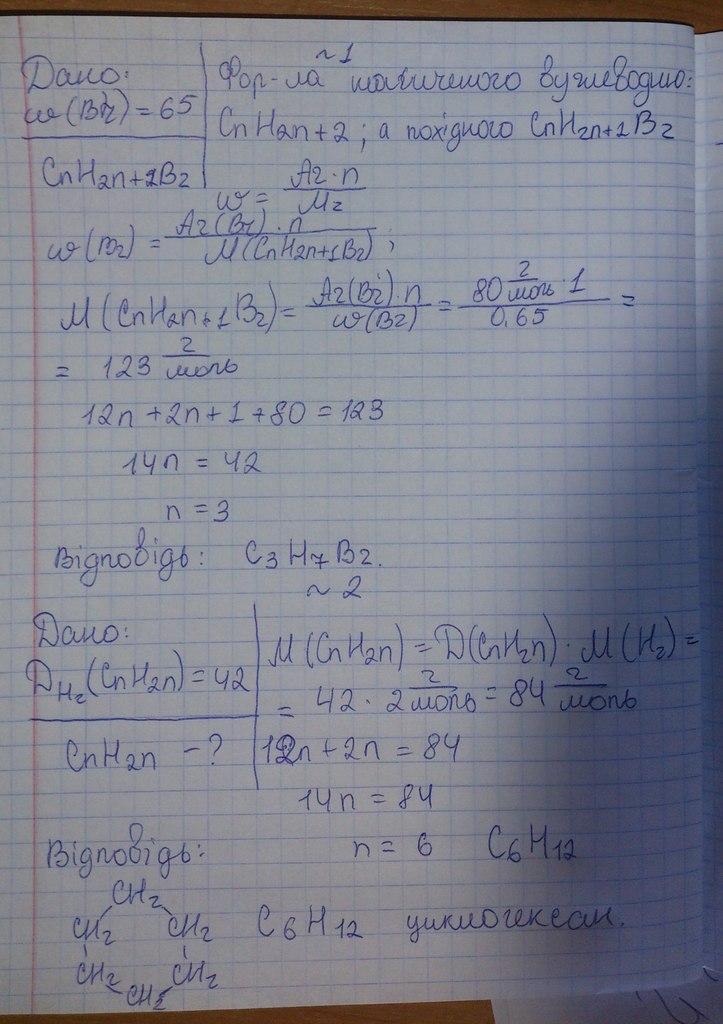 ~1
Дано:
w(Br) = 65
CnH2n+1Br
Фор-ла насиченого вуглеводню:
CnH2n+2; а похідного CnH2n+1Br
w = Ar·n / Mr
w(Br) = Ar(Br)·n / M(CnH2n+1Br) ;
M(CnH2n+1Br) = Ar(Br)·n / w(Br) = 80 г/моль · 1 / 0,65 =
= 123 г/моль
12n + 2n + 1 + 80 = 123
14n = 42
n = 3
Відповідь: C3H7Br.
~2
Дано:
DH2(CnH2n) = 42
CnH2n - ?
M(CnH2n) = D(CnH2n) · M(H2) =
= 42 · 2 г/моль = 84 г/моль
12n + 2n = 84
14n = 84
n = 6 C6H12
Відповідь:
CH2
CH2 CH2 C6H12 циклогексан.
CH2 CH2
CH2